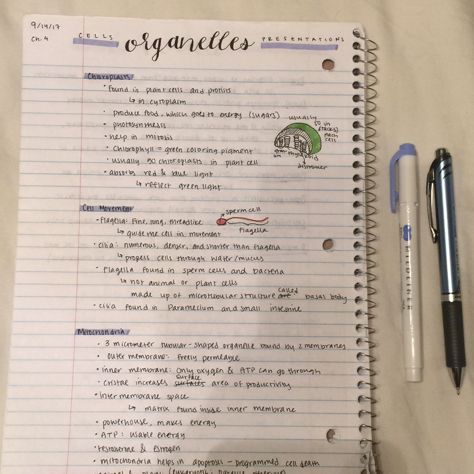 9/14/17
Ch. 4
CELLS
organelles
PRESENTATIONS
Chloroplasts
· Found in plant cells and protists
↳ in cytoplasm
· produce food, which goes to energy (sugars)
· photosynthesis
· help in mitosis
· chlorophyll = green coloring pigment
· usually 50 chloroplasts in plant cell
· absorbs red & blue light
↳ reflect green light
usually
50 in
each
cell
thylakoid
Cell Movement
· Flagella: Fine, long, threadlike
↳ guide the cell in movement
sperm cell
flagella
· cilia: numerous, denser, and shorter than flagella
↳ propels cell through water/mucus
· Flagella found in sperm cells and bacteria
↳ not animal or plant cells
made up of microtubular structure called basal body
· cilia found in Paramecium and small intestine
Mitochondria
· 3 micrometer tubular-shaped organelle bound by 2 membranes
· outer membrane: Freely permeable
· inner membrane: Only oxygen & ATP can go through
· Cristae increases surface area of productivity
· Inner membrane space
↳ matrix found inside inner membrane
· powerhouse, makes energy
· ATP: usable energy
· testosterone & estrogen
· mitochondria helps in apoptosis - programmed cell death
MILDLINER